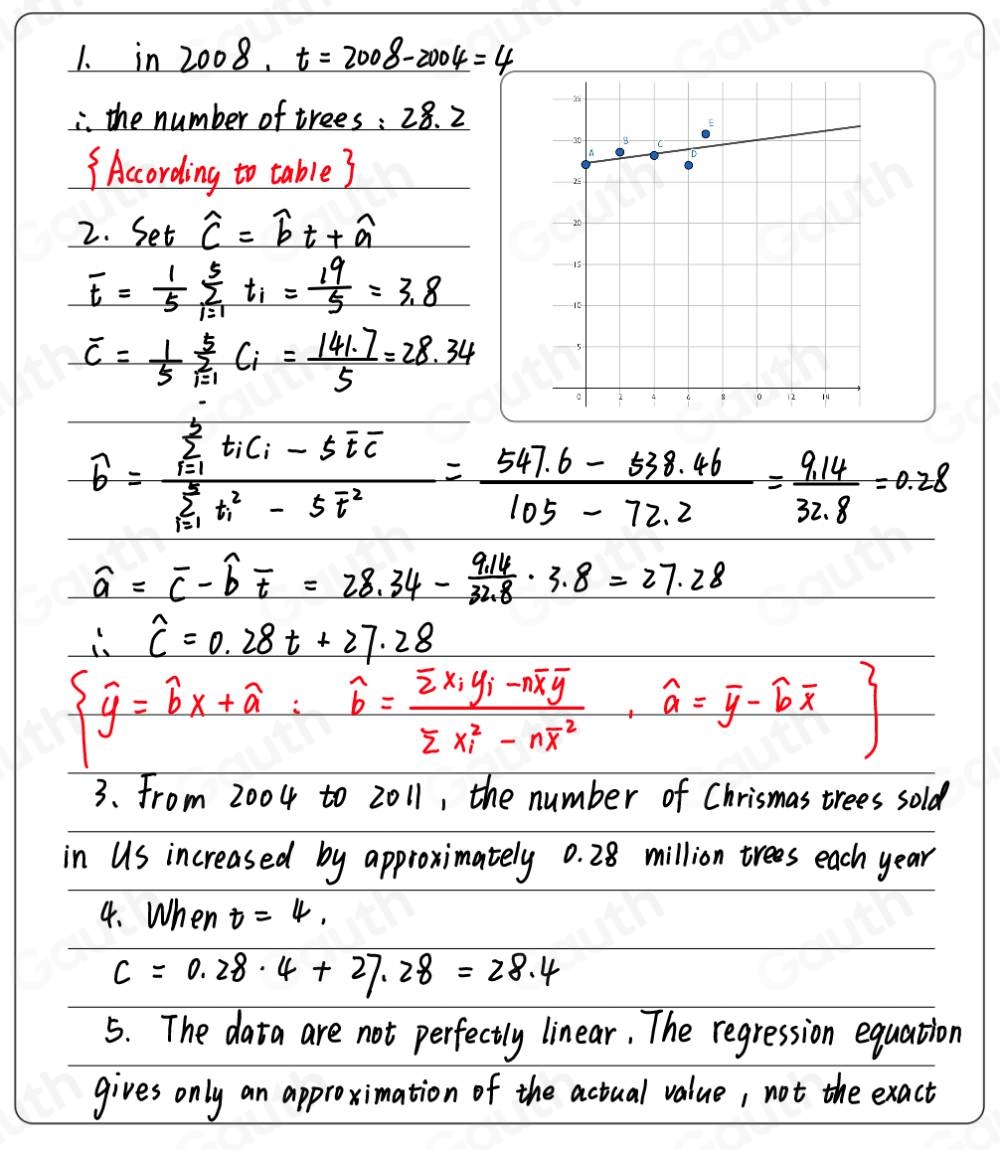 1. in 2008, t = 2008-2004 = 4
∴ the number of trees : 28.2
{According to table}
2. Set ĉ = b̂ t + â
t̄ = 1/5 Σ_{i=1}^{5} ti = 19/5 = 3.8
c̄ = 1/5 Σ_{i=1}^{5} Ci = 141.7/5 = 28.34
35
30
25
20
15
10
5
0 2 4 6 8 0 12 14
A B C D E
b̂ = (Σ_{i=1}^{5} tiCi - 5 t̄ c̄)/(Σ_{i=1}^{5} ti² - 5 t̄²) = (547.6 - 538.46)/(105 - 72.2) = 9.14/32.8 = 0.28
â = c̄ - b̂ t̄ = 28.34 - 9.14/32.8 · 3.8 = 27.28
∴ ĉ = 0.28t + 27.28
{ŷ = b̂x + â : b̂ = (Σ xi yi - nx̄ȳ)/(Σ xi² - nx̄²) , â = ȳ - b̂ x̄}
3. From 2004 to 2011, the number of Chrismas trees sold
in US increased by approximately 0.28 million trees each year
4. When t = 4,
C = 0.28 · 4 + 27.28 = 28.4
5. The data are not perfectly linear. The regression equation
gives only an approximation of the actual value, not the exact
Gauth